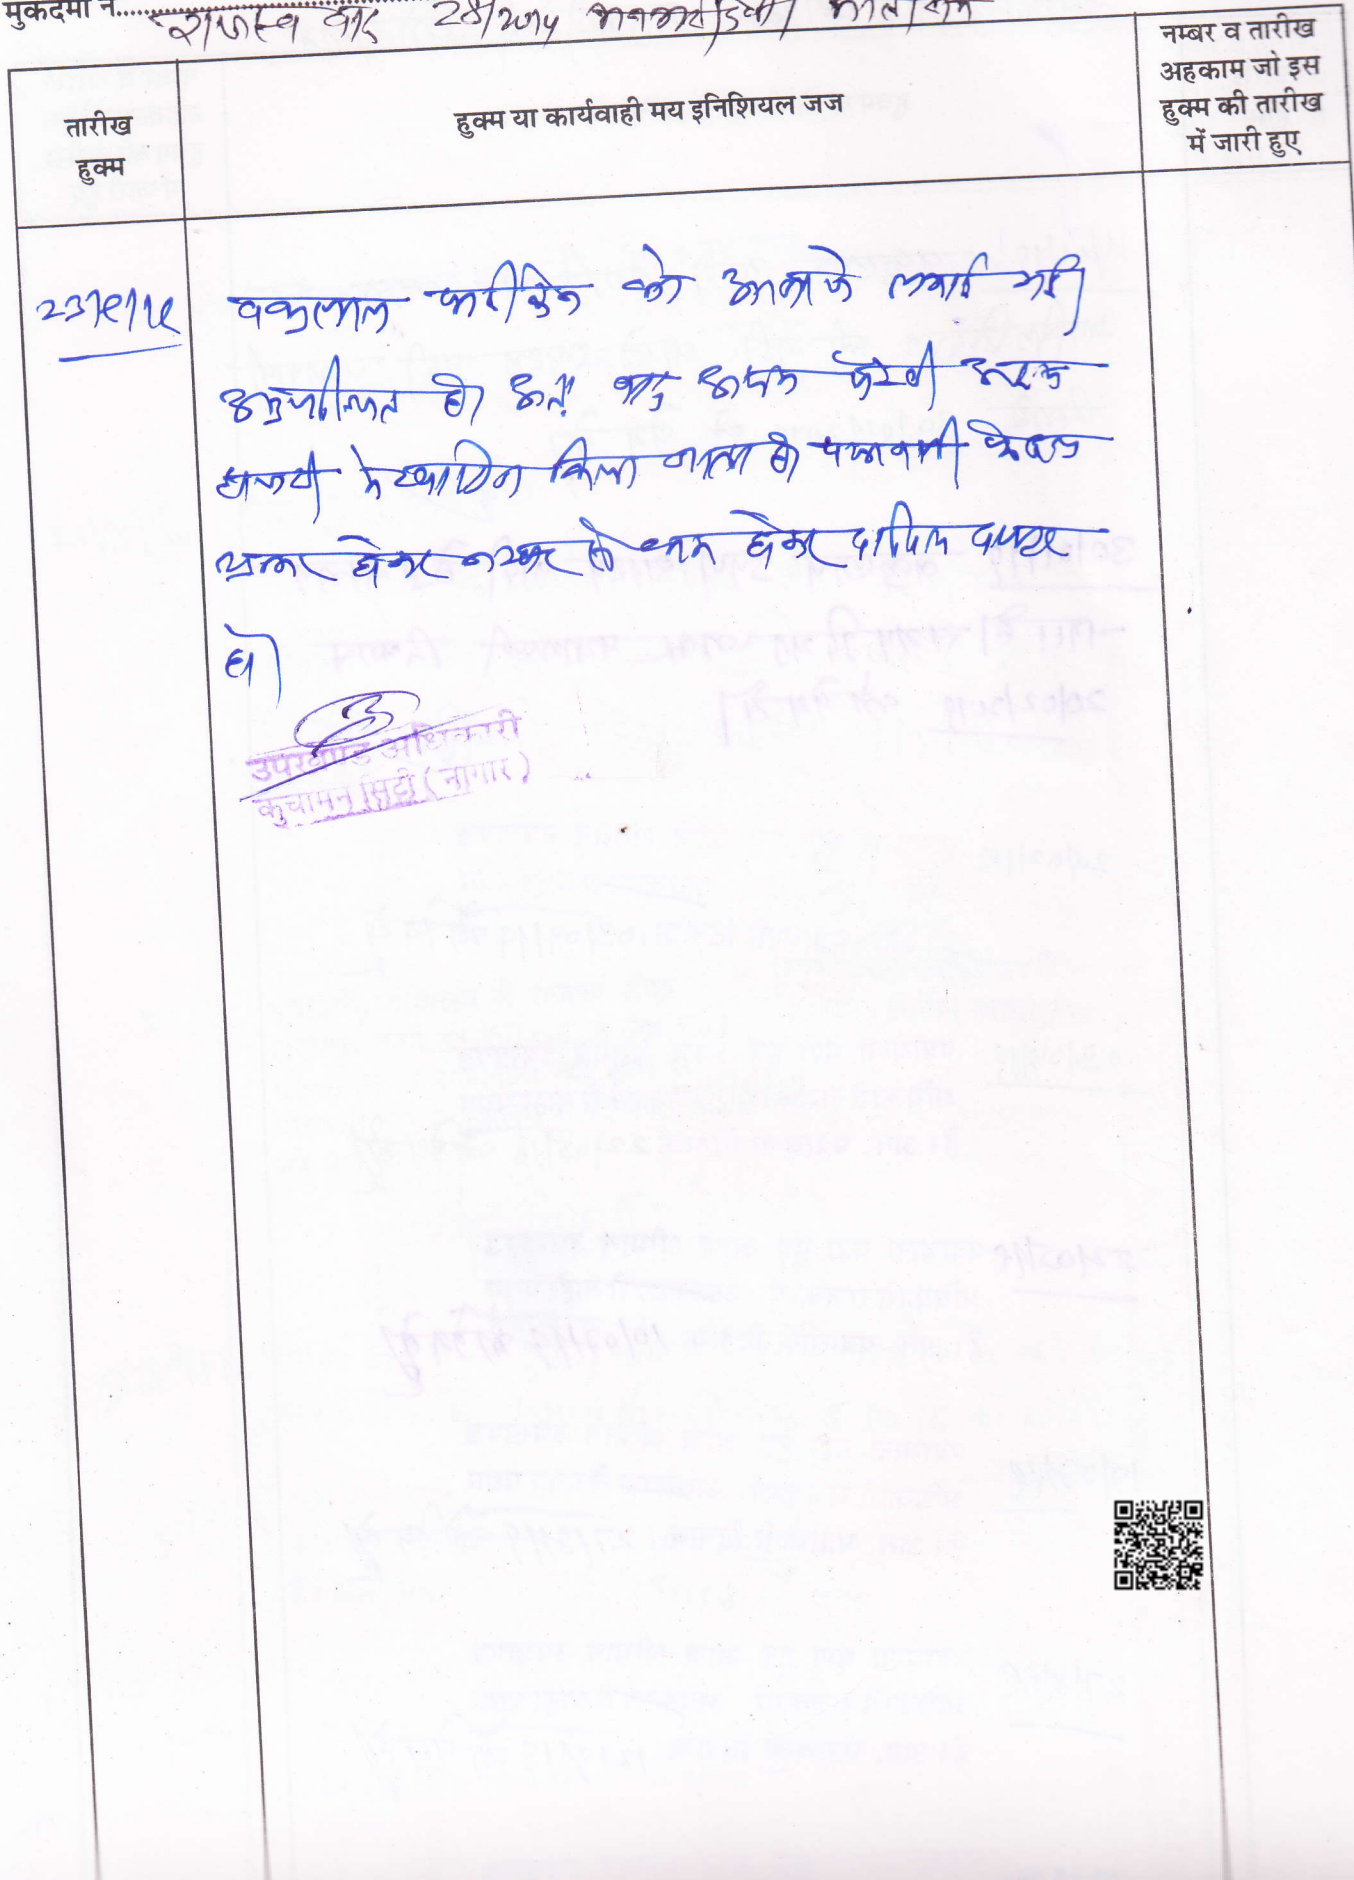 मुकदमा नं.
राजस्व वाद 28/2014
तारीख
हुक्म
हुक्म या कार्यवाही मय इनिशियल जज
नम्बर व तारीख
अहकाम जो इस
हुक्म की तारीख
में जारी हुए
वकुलाल फरीकेन को आवाजे लगाई गई।
अनुपस्थित है। अतः वाद अदम
खारिज किया जाता है। पत्रावली फैसल
शुमार होकर नम्बर से कम होकर दाखिल दफ्तर
हो।
उपखण्ड अधिकारी
कुचामन सिटी (नागौर)